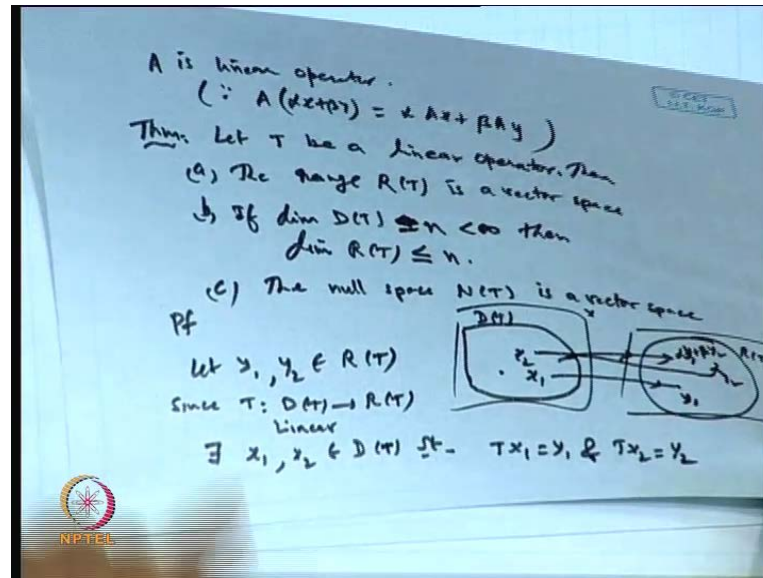 A is linear operator.
(∵ A(αx+βy) = α Ax + βAy)
Thm: Let T be a linear operator. Then
(a) The range R(T) is a vector space
b) If dim D(T) = n < ∞ then
dim R(T) ≤ n.
(c) The null space N(T) is a vector space
Pf
D(T)
x
R(T)
Let y₁, y₂ ∈ R(T)
x₂
x₁
αy₁+βy₂
y₂
y₁
Since T: D(T) → R(T)
Linear
∃ x₁, x₂ ∈ D(T) st- Tx₁ = y₁ & Tx₂ = y₂
NPTEL